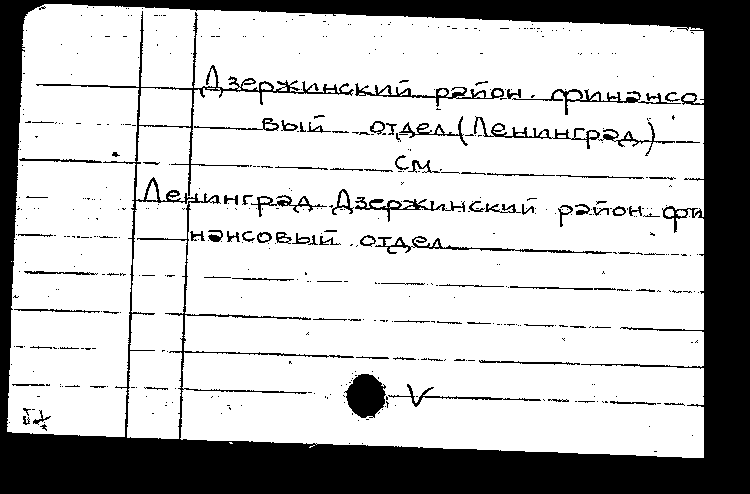 Дзержинский район. финансо-
вый отдел (Ленинград)
см.
Ленинград. Дзержинский район. фи
нансовый отдел.
V